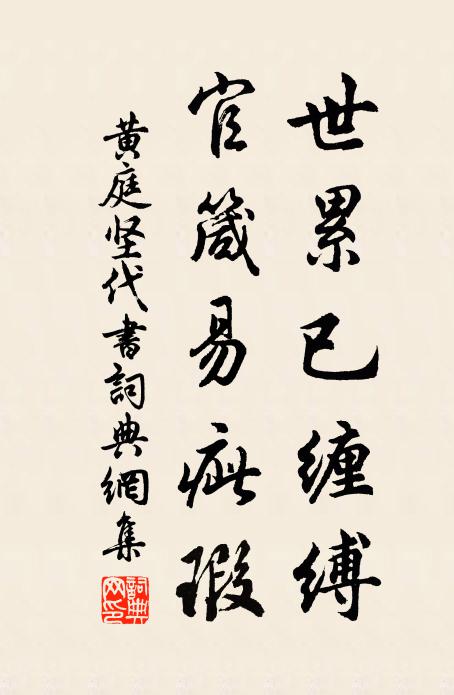 世累已缠缚
官箴易疵瑕
黄庭坚代書詞典網集
詞典網印